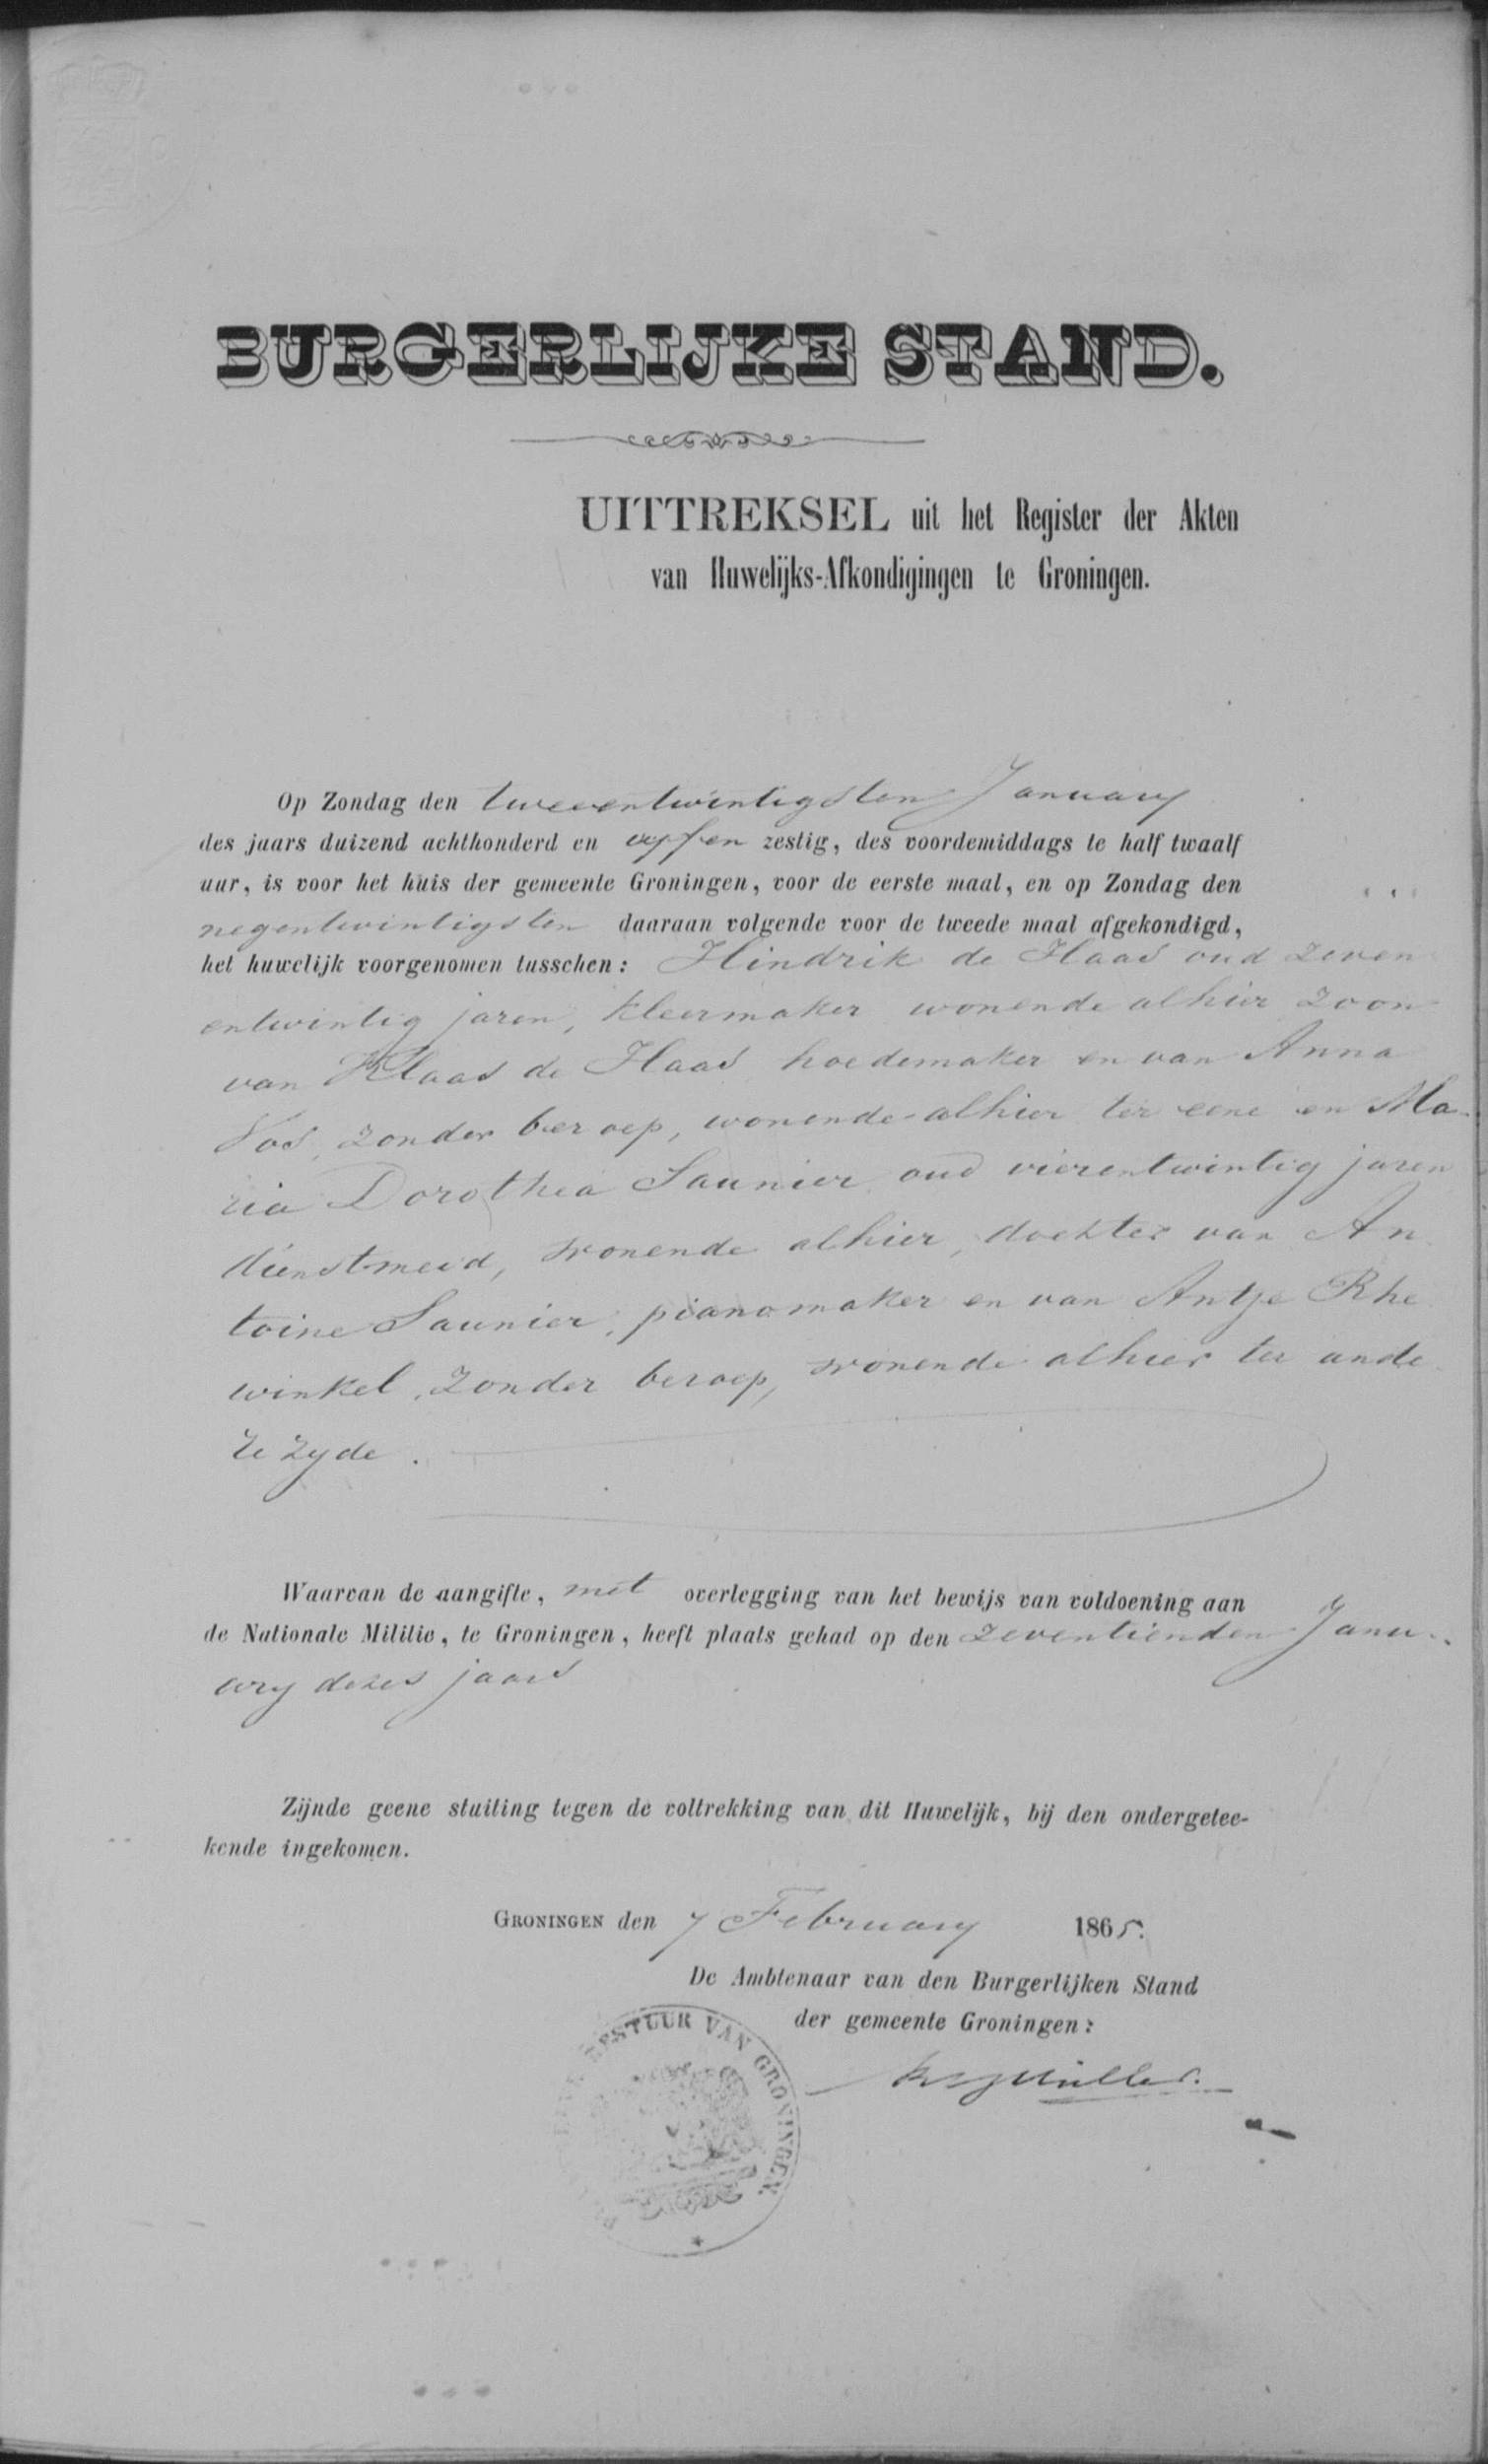 BURGERLIJKE STAND.
UITTREKSEL uit het Register der Akten
van Huwelijks-Afkondigingen te Groningen.
Op Zondag den tweeentwintigsten January
des jaars duizend achthonderd en vyf en zestig, des voordemiddags te half twaalf
uur, is voor het huis der gemeente Groningen, voor de eerste maal, en op Zondag den
negentwintigsten daaraan volgende voor de tweede maal afgekondigd,
het huwelijk voorgenomen tusschen: Hindrik de Haas oud zeven
entwintig jaren, kleermaker wonende alhier zoon
van Klaas de Haas, hoedemaker en van Anna
Vos, zonder beroep, wonende alhier ter eene en Ma-
ria Dorothea Saunier oud vierentwintig jaren
dienstmeid, wonende alhier, dochter van An
toine Saunier, pianomaker en van Antje Rhe
winkel, zonder beroep, wonende alhier ter ande
re zyde.
Waarvan de aangifte, met overlegging van het bewijs van voldoening aan
de Nationale Militie, te Groningen, heeft plaats gehad op den zeventienden Janu-
ary dezes jaars
Zijnde geene stuiting tegen de voltrekking van dit Huwelijk, bij den ondergetee-
kende ingekomen.
GRONINGEN den 7 February 1865.
De Ambtenaar van den Burgerlijken Stand
der gemeente Groningen:
Müller.
BESTUUR VAN GRONINGEN